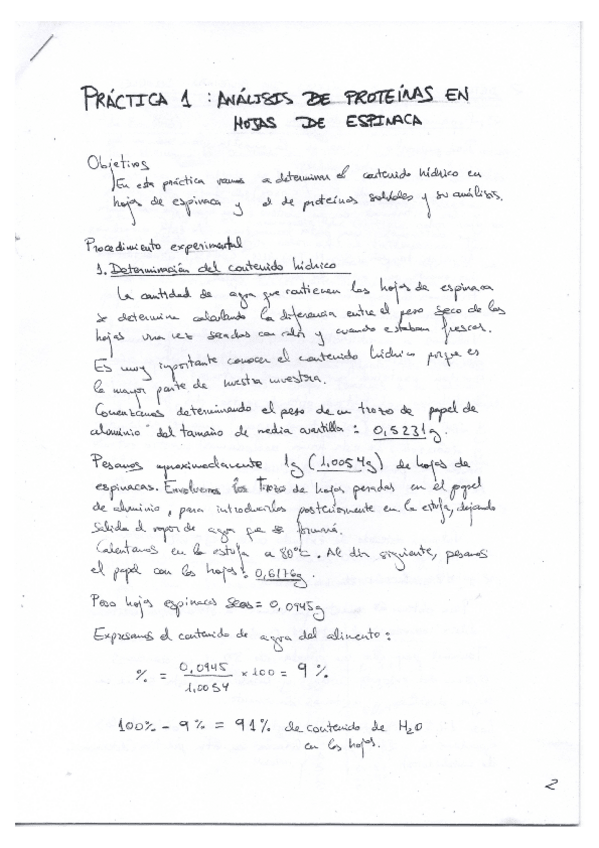 PRÁCTICA 1 : ANÁLISIS DE PROTEÍNAS EN
HOJAS DE ESPINACA
Objetivos
En esta práctica vamos a determinar el contenido hídrico en
hojas de espinaca y el de proteínas solubles y su análisis.
Procedimiento experimental
1. Determinación del contenido hídrico
La cantidad de agua que contienen las hojas de espinaca
se determina calculando la diferencia entre el peso seco de las
hojas una vez secadas con calor y cuando estaban frescas.
Es muy importante conocer el contenido hídrico porque es
la mayor parte de nuestra muestra.
Comenzamos determinando el peso de un trozo de papel de
aluminio del tamaño de media cuartilla : 0,5231g.
Pesamos aproximadamente 1g (1,0054g) de hojas de
espinacas. Envolvemos los trozos de hojas pesadas en el papel
de aluminio, para introducirlos posteriormente en la estufa, dejando
salida al vapor de agua que se formará.
Calentamos en la estufa a 80ºC. Al día siguiente, pesamos
el papel con las hojas: 0,6176g.
Peso hojas espinacas secas = 0,0945g
Expresamos el contenido de agua del alimento :
% = 0,0945 / 1,0054 × 100 = 9 %
100% - 9% = 91% de contenido de H2O
en las hojas.
2